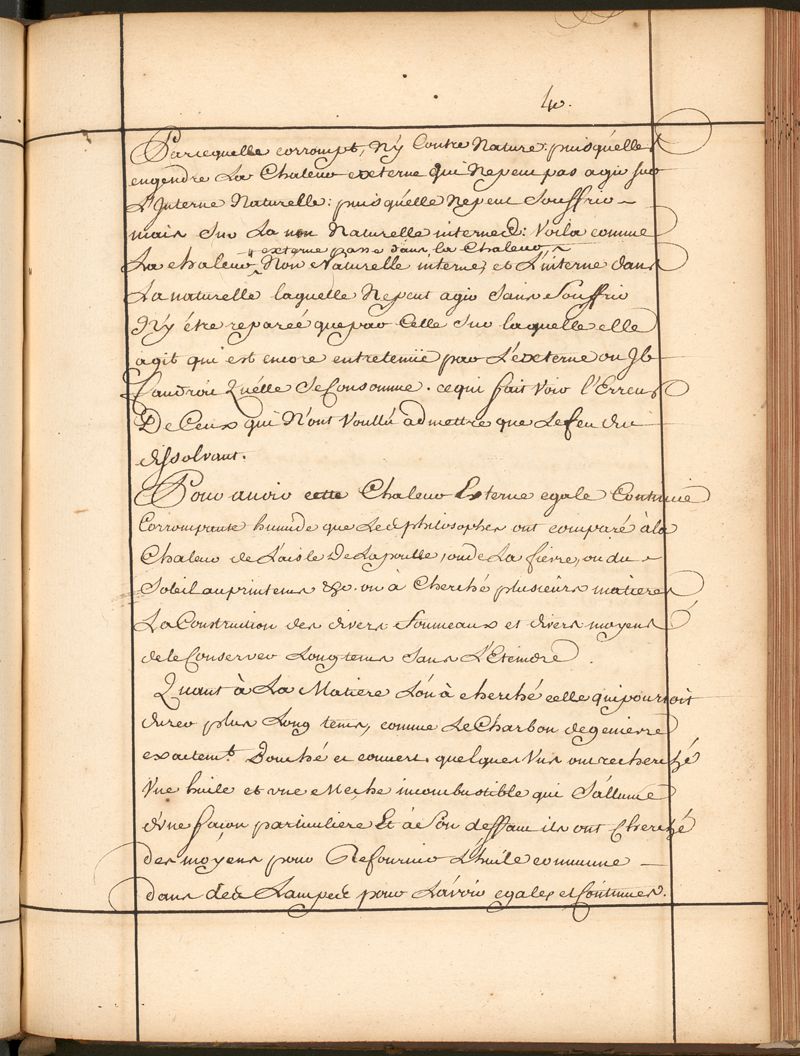 40.
Parcequelle corrompt, Ny Contre Nature: puisquélle
engendre La Chaleur externe qui Nepeut pas agir sur
L'Interne Naturelle: puisquélle Nepeut Souffrir ~
mais Sur La non Naturelle interne: Voila comme
externe passe dans la Chaleur
La chaleur Non Naturelle interne, et L'interne dans
La naturelle laquelle Nepeut agir Sans Souffrir
Ny étre reparéé quepar Celle Sur laquelle elle
agit qui est encore entretenüe par L'externe ou Jl
faudroit Quélle Se Consomme. ce qui fait Voir l'Erreur
De Ceux qui N'ont Voullú admettre que Le feu du
dissolvant.
Pour avoir cette Chaleur Externe egale Continüe
Corrompante humide que Les philosophes ont comparé à la
Chaleur de L'aisle De La poulle, ou de La fievre, ou du ~
Soleil au printems &c. on à Cherché plusieurs matieres
La Construction des divers fourneaux et divers moyens
de le Conserver Longtems Sans L'Eteindre.
Quant à La Matiere L'on à cherché celle qui pourroit
durer plus Long tems, comme Le Charbon de genievre
exactemt. Bouché et couvert. quelques Uns ont recherché
Vne huile et vne Meche incombustible qui S'allume
d'vne façon particuliere Et à Son deffaut ils ont Cherché
des moyens pour Refournir L'huile commune
dans des Lampes pour L'avoir egale, et Continues.